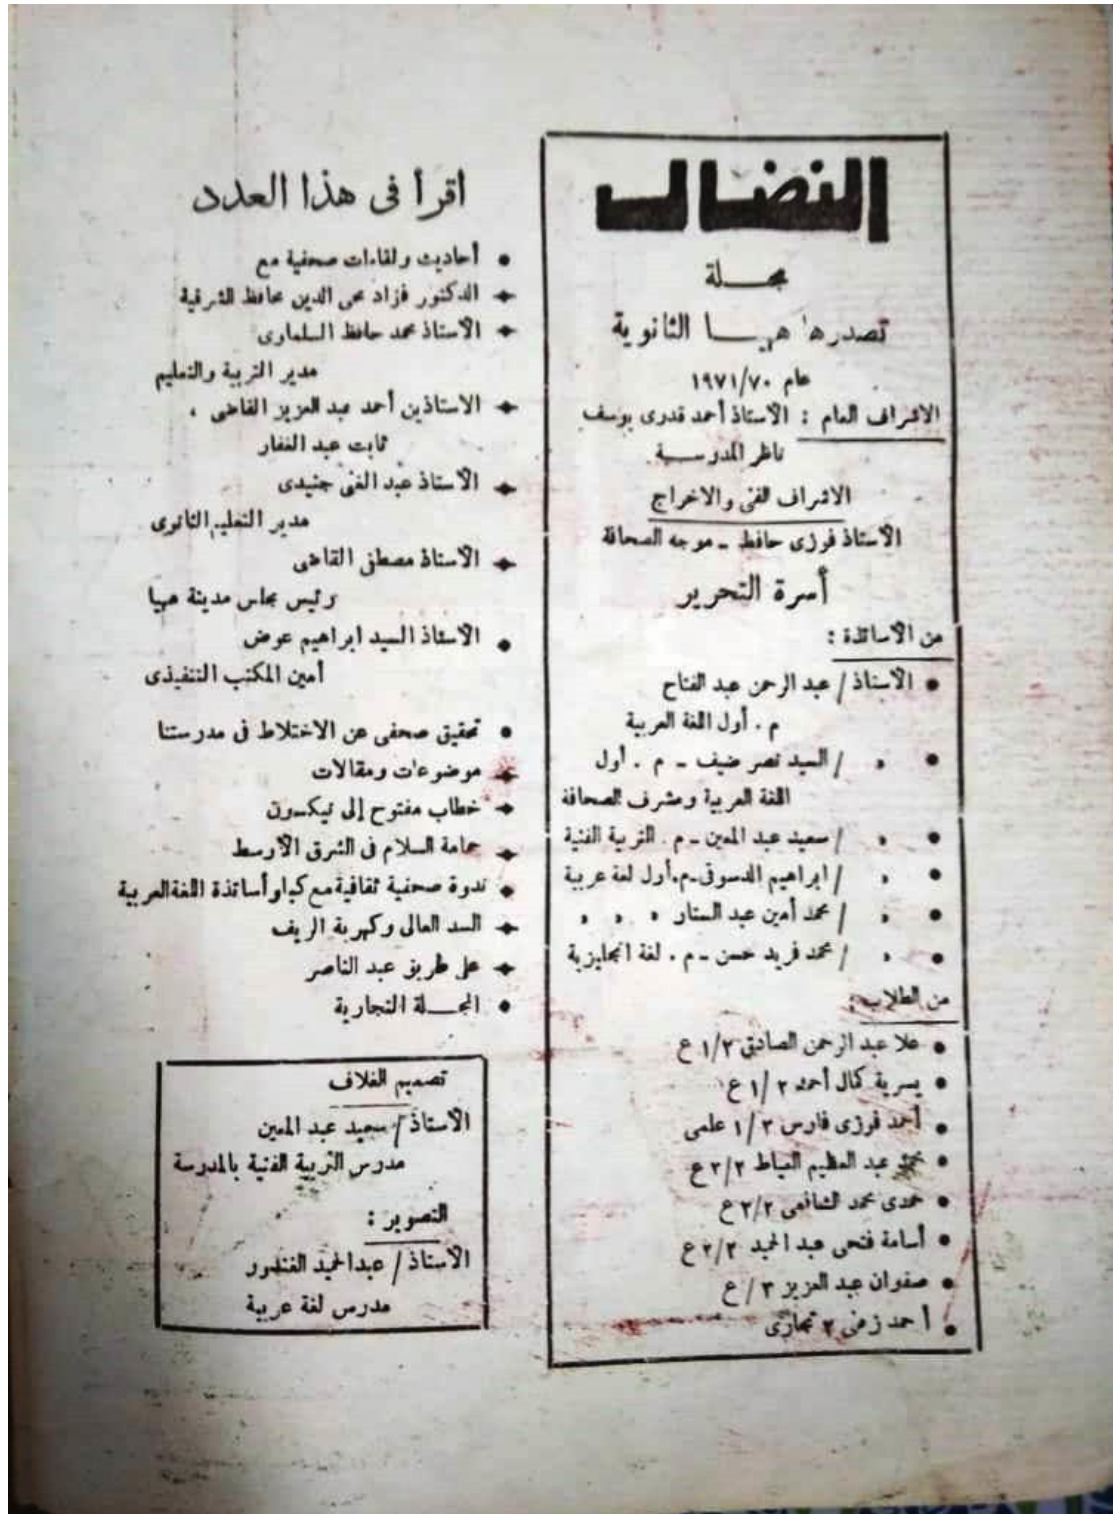 النضال
مجلة
تصدرها ههيا الثانوية
عام ١٩٧١/٧٠
الاشراف العام : الأستاذ أحمد قدرى يوسف
ناظر المدرسة
الاشراف الفنى والاخراج
الأستاذ فوزى حافظ - موجه الصحافة
أسرة التحرير
من الأساتذة :
• الأستاذ / عبد الرحمن عبد الفتاح
م . أول اللغة العربية
• » » / السيد نصر ضيف - م . أول
اللغة العربية ومشرف الصحافة
• » » / سعيد عبد المعين - م . التربية الفنية
• » » / ابراهيم الدسوقى - م . أول لغة عربية
• » » / محمد أمين عبد الستار » » »
• » » / محمد فريد حسن - م . لغة انجليزية
من الطلاب :
• علا عبد الرحمن الصادق ١/٣ ع
• يسرية كمال أحمد ١/٢ ع
• أحمد فوزى فارس ١/٣ علمى
• عبد العظيم العياط ٢/٢ ع
• حمدى محمد الشافعى ٢/٢ ع
• أسامة فتحى عبد الحميد ٢/٢ ع
• صفوان عبد العزيز ٣/ ع
• أحمد زفى ٢ تجارى
اقرأ فى هذا العدد
• أحاديث ولقاءات صحفية مع
الدكتور فؤاد محى الدين محافظ الشرقية
الأستاذ محمد حافظ السلماوى
مدير التربية والتعليم
الاستاذين أحمد عبد العزيز القاضى ،
ثابت عبد الغفار
الأستاذ عبد الغنى جنيدى
مدير التعليم الثانوى
الأستاذ مصطفى القاضى
رئيس مجلس مدينة ههيا
• الأستاذ السيد ابراهيم عوض
أمين المكتب التنفيذى
• تحقيق صحفى عن الاختلاط فى مدرستنا
موضوعات ومقالات
خطاب مفتوح إلى نيكسون
حمامة السلام فى الشرق الأوسط
ندوة صحفية ثقافية مع كبار أساتذة اللغة العربية
السد العالى وكهربة الريف
على طريق عبد الناصر
• المجلة التجارية
تصميم الغلاف
الأستاذ / سعيد عبد المعين
مدرس التربية الفنية بالمدرسة
التصوير :
الأستاذ / عبد الحميد الغندور
مدرس لغة عربية